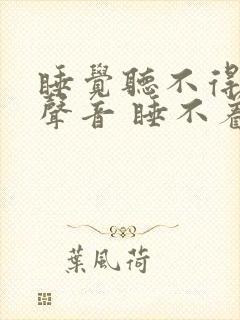 睡覺聽不得
聲音 睡不着
葉風荷